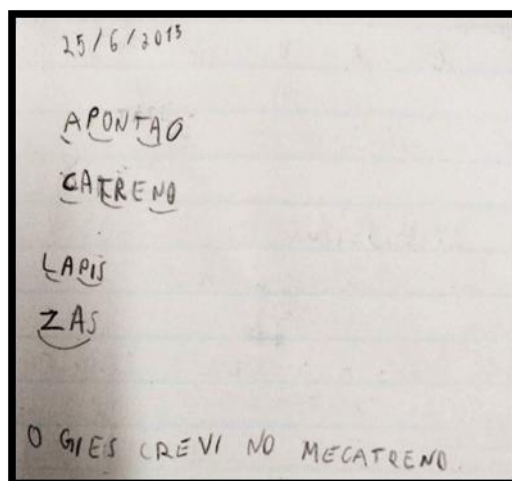 25/6/2015
APONTAO
CATRENO
LAPIS
ZAS
O GIES CREVI NO MECATRENO.